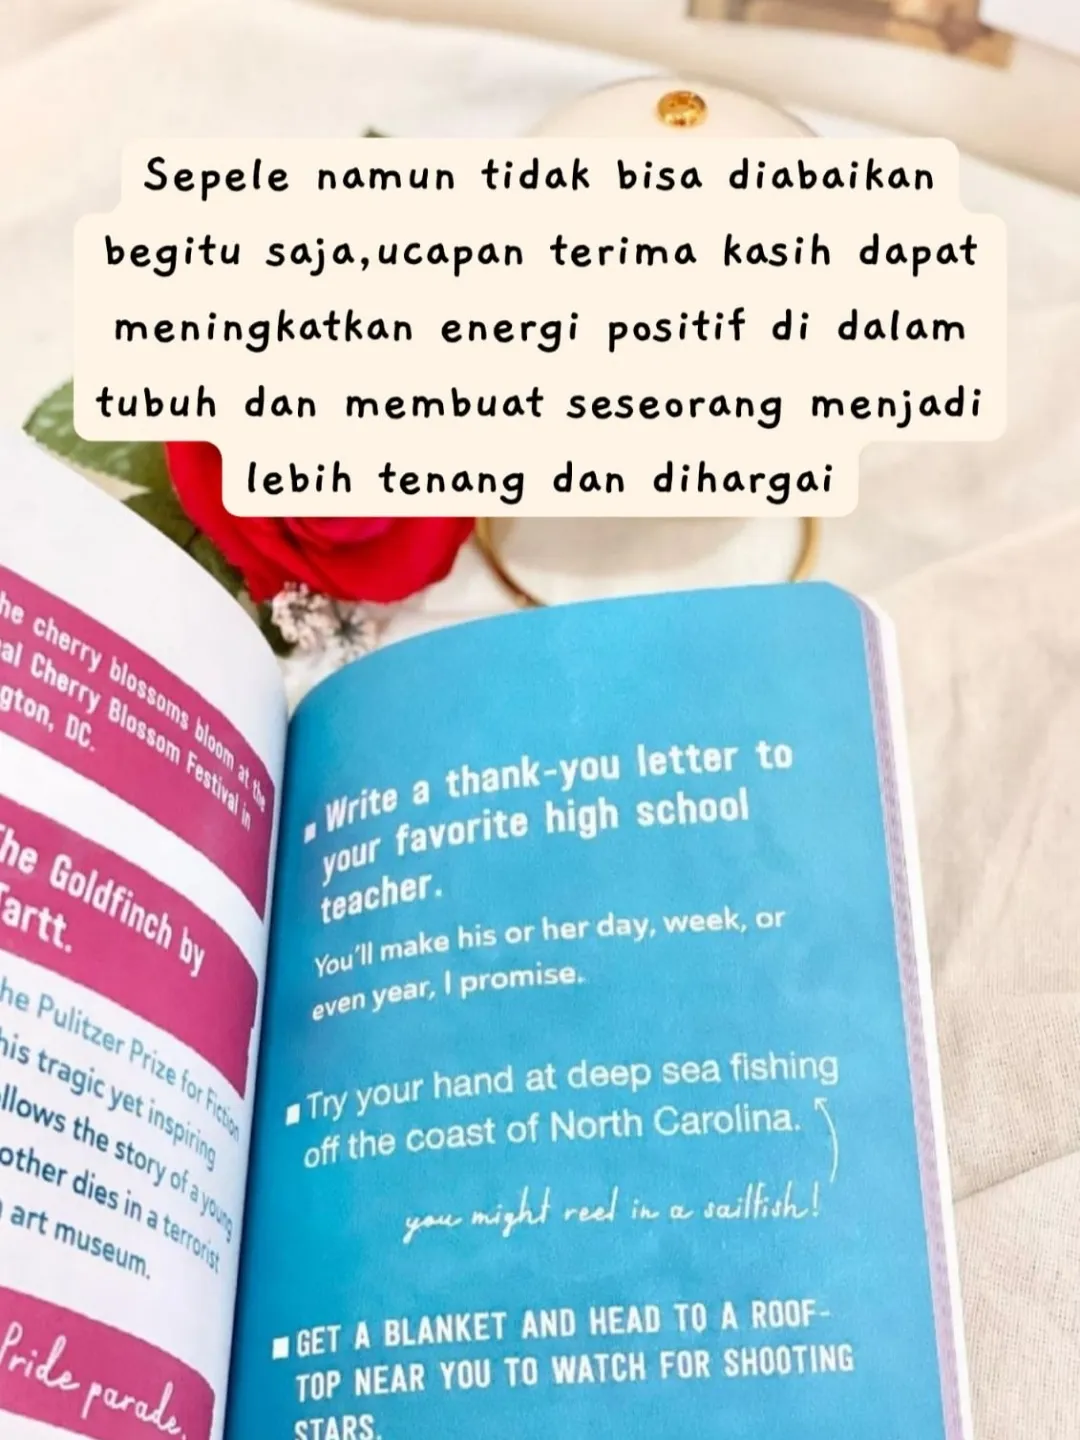 Sepele namun tidak bisa diabaikan
begitu saja,ucapan terima kasih dapat
meningkatkan energi positif di dalam
tubuh dan membuat seseorang menjadi
lebih tenang dan dihargai
he cherry blossoms bloom at the
al Cherry Blossom Festival in
gton, DC.
he Goldfinch by
Tartt.
he Pulitzer Prize for Fiction
his tragic yet inspiring
llows the story of a young
other dies in a terrorist
art museum.
Pride parade.
Write a thank-you letter to
your favorite high school
teacher.
You'll make his or her day, week, or
even year, I promise.
Try your hand at deep sea fishing
off the coast of North Carolina.
you might reel in a sailfish!
GET A BLANKET AND HEAD TO A ROOF-
TOP NEAR YOU TO WATCH FOR SHOOTING
STARS.